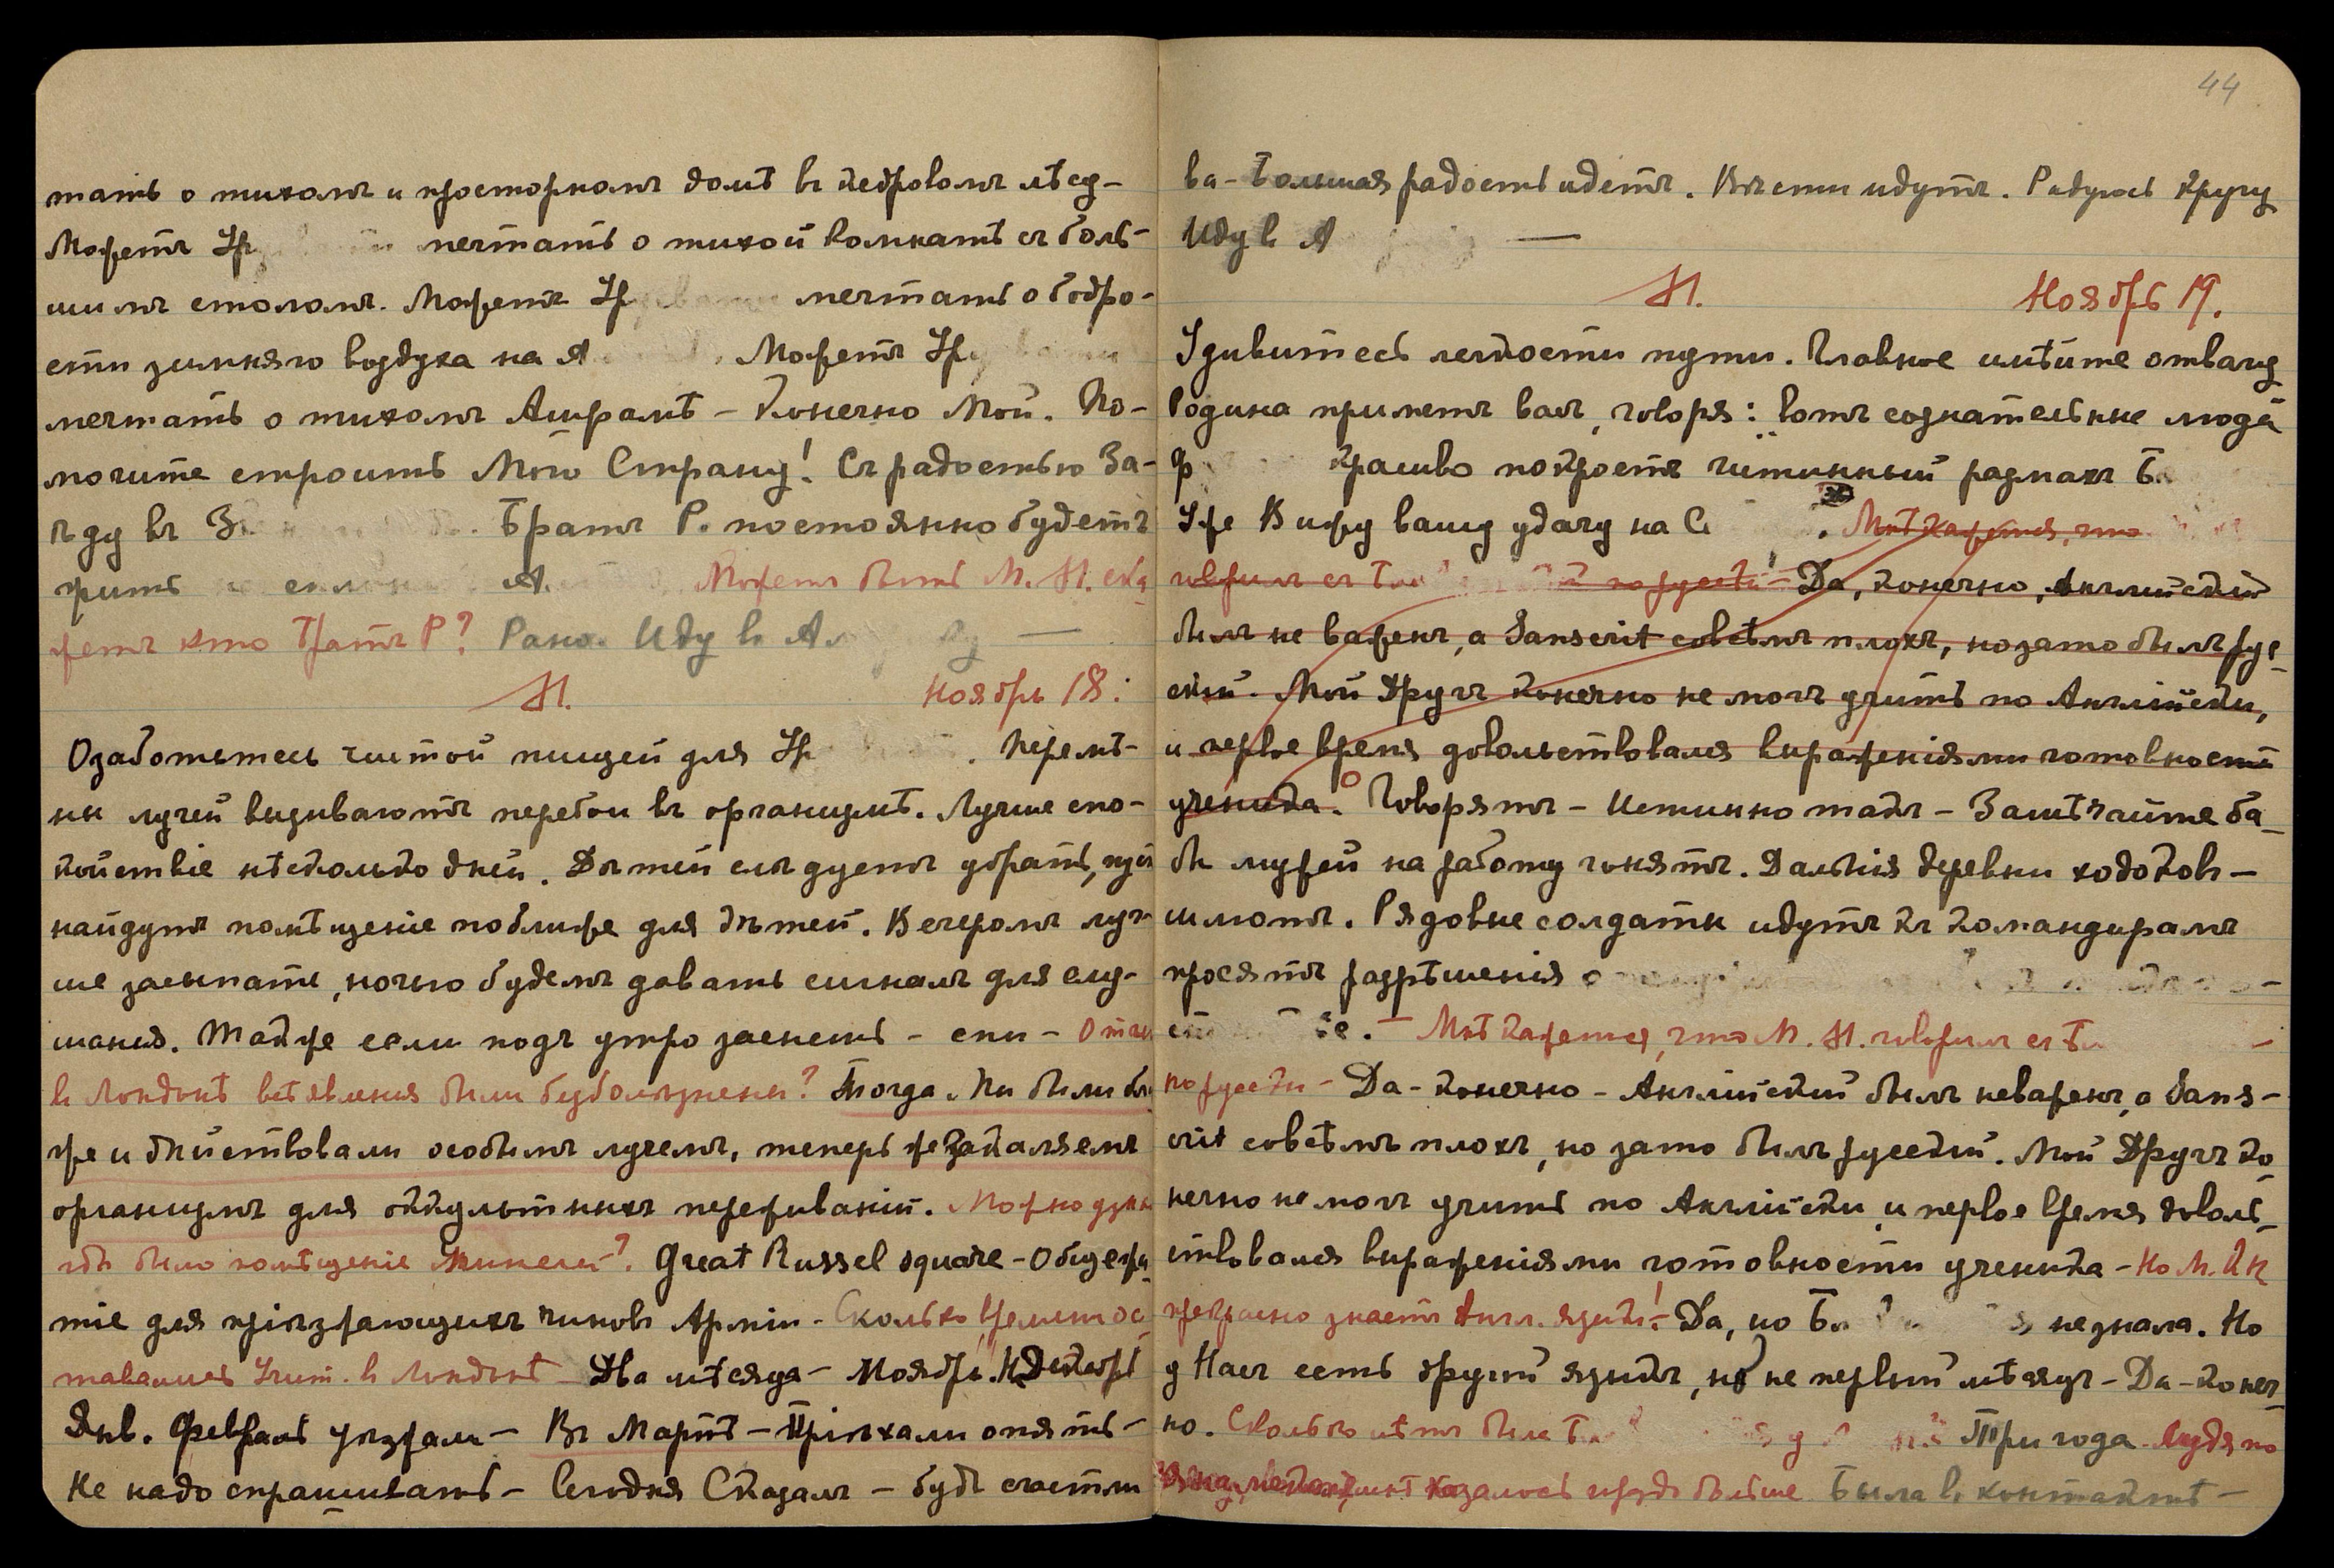 тать о тихомъ и просторномъ домѣ въ кедровомъ лѣсу-
Можетъ Ур мечтать о тихой комнатѣ съ боль-
шимъ столомъ. Можетъ Ур мечтать о бодро-
сти зимняго воздуха на А Можетъ Ур
мечтать о тихомъ Ашрамѣ – Конечно Мой. По-
могите строить Мою Страну! Съ радостью За-
ѣду въ Зв Братъ Р. постоянно будетъ
А. Можетъ быть М. М. ска
жетъ кто Братъ Р? Рано. Иду въ А —
М. Ноябрь 18.
Озаботьтесь чистой пищей для Ур . Перемѣ-
ны лучей вызываютъ перебои въ организмѣ. Лучше спо-
койствіе нѣсколько дней. Дѣтей слѣдуетъ убрать,
найдутъ помѣщеніе поближе для дѣтей. Вечеромъ луч-
ше засыпать, ночью будемъ давать сигналъ для слу-
шанія. Также если подъ утро заснешь – спи –
въ Лондонѣ всѣ явленія были безболѣзненны? Тогда Мы были бли
же и дѣйствовали особымъ лучемъ, теперь же закаляемъ
организмъ для оккультныхъ переживаній. Можно
гдѣ было помѣщеніе Great Russel square – Общежи
тіе для пріѣзжающихъ чиновъ Арміи – Сколько времени ос
тавались Учит. въ Лондонѣ – Два мѣсяца – Ноябрь. Декабрь
Янв. Февраль уѣзжали – Въ Мартѣ – Пріѣхали опять –
Не надо спрашивать – Сегодня Сказалъ – будь счастли
44
ва – Большая радость идетъ. Вѣсти идутъ. Радуюсь Кругу
Иду въ А —
М. Ноябрь 19.
Удивитесь легкости пути. Главное имѣйте отвагу
Родина приметъ васъ, говоря: вотъ сознательные люди
Ф Красиво покроетъ истинный размахъ Б
Уже Вижу вашу удачу на С . Мнѣ кажется, что
говорилъ съ по русски – Да, конечно, Англійскій
былъ не важенъ, а Sanscrit совсѣмъ плохъ, но зато былъ рус
скій. Мой Другъ конечно не могъ учить по Англійски,
и первое время довольствовался выраженіями готовности
ученика. Говорятъ – Истинно такъ – Замѣчайте ба-
бы мужей на работу гонятъ. Дальнія деревни ходоковъ –
шлютъ. Рядовые солдаты идутъ къ командирамъ
просятъ разрѣшенія
– Мнѣ кажется, что М. М. говорилъ съ –
по русски – Да – конечно – Англійскій былъ неваженъ, а Sans-
crit совсѣмъ плохъ, но зато былъ русскій. Мой Другъ ко
нечно не могъ учить по Англійски и первое время доволь-
ствовался выраженіями готовности ученика – Но М.
прекрасно знаетъ Англ. языкъ! – Да, но не знала. Но
у Насъ есть другой языкъ, но не первый мѣсяцъ – Да – конеч
но. Сколько лѣтъ была у Три года. Судя по
мнѣ казалось гораздо больше Была въ контактѣ –